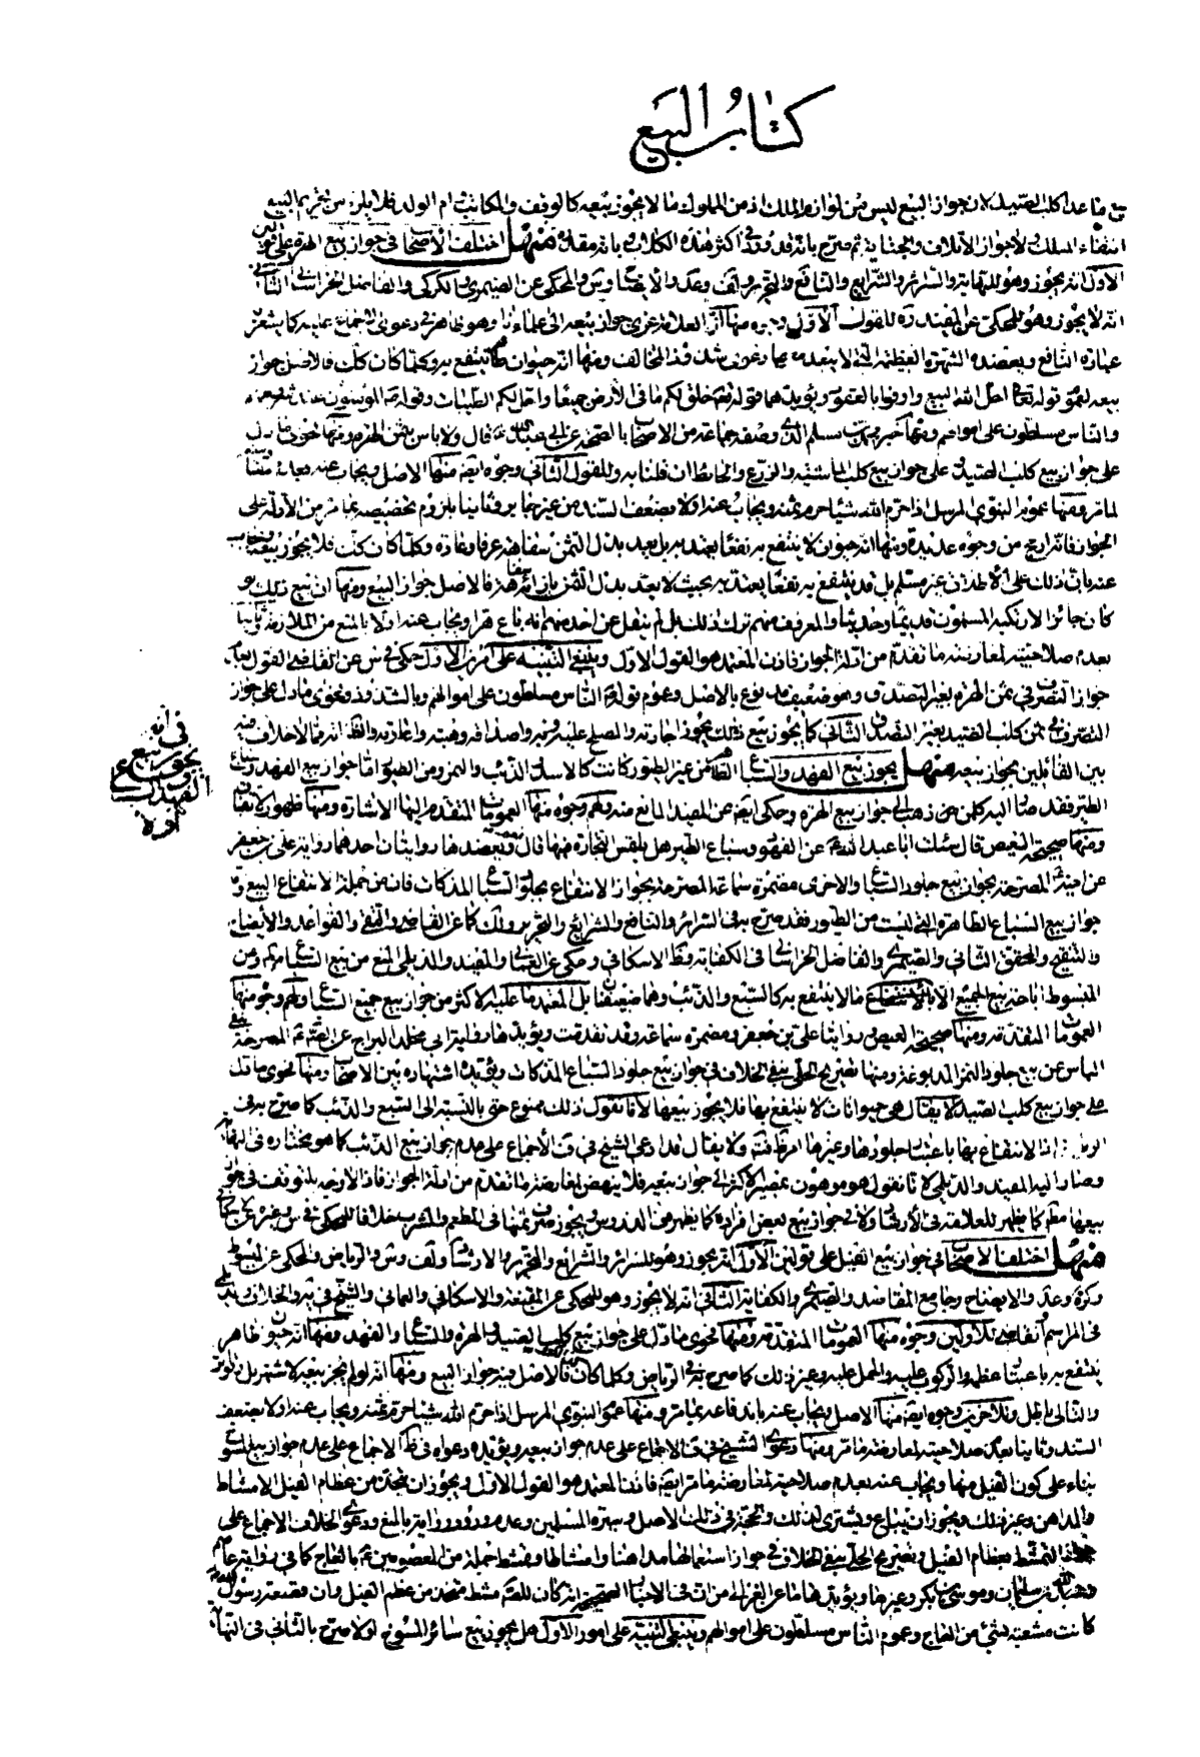 كتاب البيع
بيع ما عدا كلب الصيد لان جواز البيع ليس من لوازم الملك اذ من المملوك ما لا يجوز بيعه كالوقف والمكاتب وام الولد فلا يلزم من تحريم البيع
انتفاء الملك ولا جواز الاتلاف والجناية ثم صرح بانه قد وقع في اكثر هذه الكلاب بانه مقدر منها اختلف الاصحاب في جواز بيع الهرة على قولين
الاول انه يجوز وهو للنهاية والسرائر والشرايع والنافع والتحرير ولف وعد والايضاح وس والمحكى عن الصيمري والكركى والفاضل الخراساني الثاني
انه لا يجوز وهو للمحكى عن المفيد ره للقول الاول وجوه منها ان العلامة عزى جواز بيعه الى علمائنا وهو ظاهر في دعوى الاجماع عليه كما يشعر به
عبارة النافع ويعضده الشهرة العظيمة التي لا يبعد معها دعوى شذوذ المخالف ومنها انه حيوان طاهر ينتفع به وكلما كان كك فالاصل جواز
بيعه لعموم قوله تعالى احل الله البيع واوفوا بالعقود ويؤيدهما قوله تعالى خلق لكم ما في الارض جميعا واحل لكم الطيبات وقوله المؤمنون عند شروطهم
والناس مسلطون على اموالهم ومنها خبر محمد بن مسلم الذي وصفه جماعة من الاصحاب بالصحة عن ابي عبد الله ع قال ولا باس بثمن الهرة ومنها فحوى ما دل
على جواز بيع كلب الصيد وعلى جواز بيع كلب الماشية والزرع والحائط ان قلنا به وللقول الثاني وجوه ايضا منها الاصل ويجاب عنه باندفاعه
لما مر ومنها عموم النبوي المرسل اذا حرم الله شيئا حرم ثمنه ويجاب عنه اولا بضعف السند من غير جابر وثانيا بلزوم تخصيصه بما مر من الادلة على
الجواز فانه ارجح من وجوه عديدة ومنها انه حيوان لا ينتفع به نفعا يعتد به بل يعد بذل الثمن سفاهة عرفا وعادة وكلما كان كك فلا يجوز بيعه ويجاب
عنه بان ذلك على الاطلاق غير مسلم بل قد ينتفع به نفعا يعتد به بحيث لا يعد بذل الثمن بازائه سفها فالاصل جواز البيع ومنها ان بيع ذلك لو
كان جائزا لارتكبه المسلمون قديما وحديثا والمعروف منهم ترك ذلك بل لم ينقل عن احد منهم انه باع هرا ويجاب عنه اولا بالمنع من الملازمة وثانيا
بعدم صلاحيته لمعارضة ما تقدم من ادلة الجواز فاذن المعتمد هو القول الاول وينبغي التنبيه على امرين الاول حكى في س عن القاضي القول بعدم
جواز التصرف في ثمن الهرة بغير التصدق وهو ضعيف مدفوع بالاصل وعموم قوله الناس مسلطون على اموالهم وبالشذوذ وفحوى ما دل على جواز
التصرف في ثمن كلب الصيد بغير التصدق الثاني كما يجوز بيع ذلك يجوز اجارته والصلح عليه وغيره واصداقه وهبته واعارته والظاهر انه مما لا خلاف فيه
بين القائلين بجواز بيعه منها هل يجوز بيع الفهد والسباع الطاهرة من غير الطيور كانت كالاسد والذئب والنمر ومن الطيور اما جواز بيع الفهد وسباع
الطير فقد صار اليه كل من ذهب الى جواز بيع الهرة وحكى ايضا عن المفيد المانع منه ولهم وجوه منها العمومات المتقدم اليها الاشارة ومنها ظهور الاتفاق
ومنها صحيحة العيص قال سئلت ابا عبد الله ع عن الفهود وسباع الطير هل يلتمس التجارة فيها قال نعم ويعضدها روايتان احدهما رواية على بن جعفر
عن اخيه ع المصرحة بجواز بيع جلود السباع والاخرى مضمرة سماعة المصرحة بجواز الانتفاع بجلود السباع المذكاة فان من جملة الانتفاع البيع واما
جواز بيع السباع الطاهرة التي ليست من الطيور فقد صرح به في السرائر والنافع والشرايع والتحرير ولف كما عن القاضي والمنتهى والقواعد والايضاح
والتنقيح والمحقق الثاني والصيمري والفاضل الخراساني في الكفاية وظ الاسكافي وحكى عن العماني والمفيد والديلمي المنع من بيع السباع وعن
المبسوط اباحة بيع الجميع الا ما لا ينتفع به كالسبع والذئب وهما ضعيفان بل المعتمد ما عليه الاكثر من جواز بيع جميع السباع ولهم وجوه منها
العمومات المتقدمة ومنها صحيحة العيص وروايتا على بن جعفر ومضمرة سماعة وقد تقدمت ويؤيدها رواية ابي مخلد السراج عن الصادق ع المصرحة بنفي
الباس عن بيع جلود النمر المدبوغة ومنها تصريح الحلي بنفي الخلاف في جواز بيع جلود السباع المذكاة ويؤيده اشتهاره بين الاصحاب ومنها فحوى ما دل
على جواز بيع كلب الصيد لا يقال هي حيوانات لا ينتفع بها فلا يجوز بيعها لانا نقول ذلك ممنوع حتى بالنسبة الى السبع والذئب كما صرح به في
اذ الانتفاع بها باعتبار جلودها وغيرها امر ظاهر ولا يقال قد ادعى الشيخ في ف الاجماع على عدم جواز بيع الذئب كما هو مختاره في النهاية
وصار اليه المفيد والديلمي لانا نقول هو موهون بمصير الاكثر الى جواز بيعه فلا ينهض لمعارضة ما تقدم من ادلة الجواز فاذا لا وجه للتوقف في جواز
بيعها كما يظهر للعلامة في الارشاد ولا في جواز بيع بعض افراده كما يظهر من الدروس ويجوز صرف ثمنها في المطعم والمشرب خلافا للمحكى في س وغيره عن
منها اختلف الاصحاب في جواز بيع الفيل على قولين الاول انه يجوز وهو للسرائر والشرايع والتحرير والارشاد ولف وس والرياض والمحكى عن المبسوط
وكرة وعد والايضاح وجامع المقاصد والصيمري والكفاية الثاني انه لا يجوز وهو للمحكى عن المقنعة والاسكافي والعماني والشيخ في ية والخلاف والديلمي
في المراسم والقاضي للاولين وجوه منها العمومات المتقدمة ومنها فحوى ما دل على جواز بيع كلب الصيد والهرة والسباع والفهد ومنها انه حيوان طاهر
ينتفع به باعتبار عظمه والركوب عليه والحمل عليه وغير ذلك كما صرح به في الرياض وكلما كان كك فالاصل فيه جواز البيع ومنها انه لو لم يجز بيعه لاشتهر بل وتواتر
والتالى باطل وللآخرين وجوه ايضا منها الاصل ويجاب عنه باندفاعه بما مر ومنها عموم النبوي المرسل اذا حرم الله شيئا حرم ثمنه ويجاب عنه اولا بضعف
السند وثانيا بعدم صلاحيته لمعارضة ما مر ومنها دعوى الشيخ في ف الاجماع على عدم جواز بيعه ويؤيده دعواه في ط الاجماع على عدم جواز بيع المسوخ
بناء على كون الفيل منها ويجاب عنه بعدم صلاحيته لمعارضة ما مر ايضا فاذن المعتمد هو القول الاول ويجوز ان يتخذ من عظام الفيل الامشاط
والمداهن وغير ذلك ويجوز ان يباع ويشترى لذلك والحجة في ذلك الاصل وسيرة المسلمين وعدم ورود رواية بالمنع ودعوى الخلاف الاجماع على
جواز التمشط بعظام الفيل وتصريح الحلي بنفي الخلاف في جواز استعمالها مداهنا وامشاطا وتمشط جملة من المعصومين ع بالعاج كما في رواية عاصم
وعبد الله بن سليمان وموسى بن بكر وغيرها ويؤيدها ما عن الغزالي من ان في الاحياء الصحيح انه كان للنبي ص مشط متخذ من عظم الفيل وان قصعته رسول الله ص
كانت مشعبة بشئ من العاج وعموم الناس مسلطون على اموالهم وينبغي التنبيه على امور الاول هل يجوز بيع سائر المسوخ اولا صرح بالثاني في النهاية
في انه
يجوز بيع
الفهد وسباع
اولا